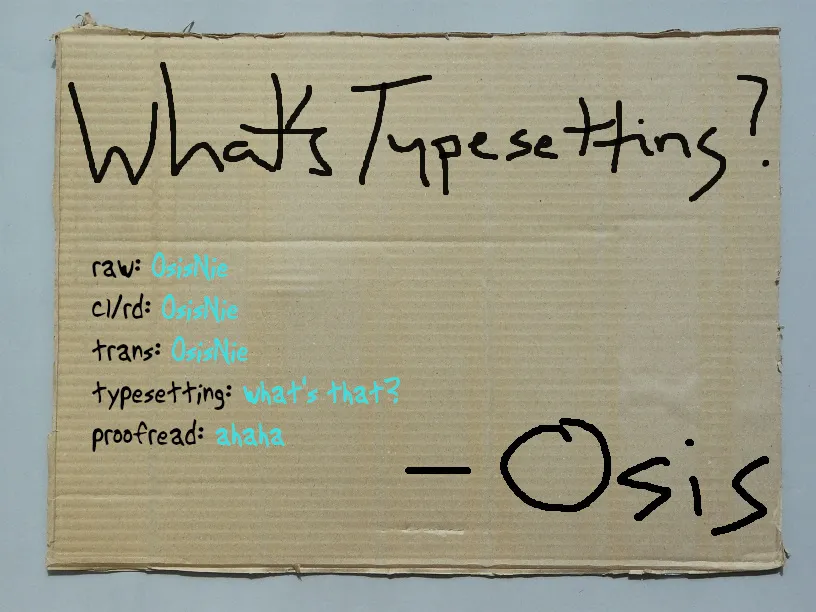 What's Typesetting?
raw: OsisNie
cl/rd: OsisNie
trans: OsisNie
typesetting: what's that?
proofread: ahaha
— Osis